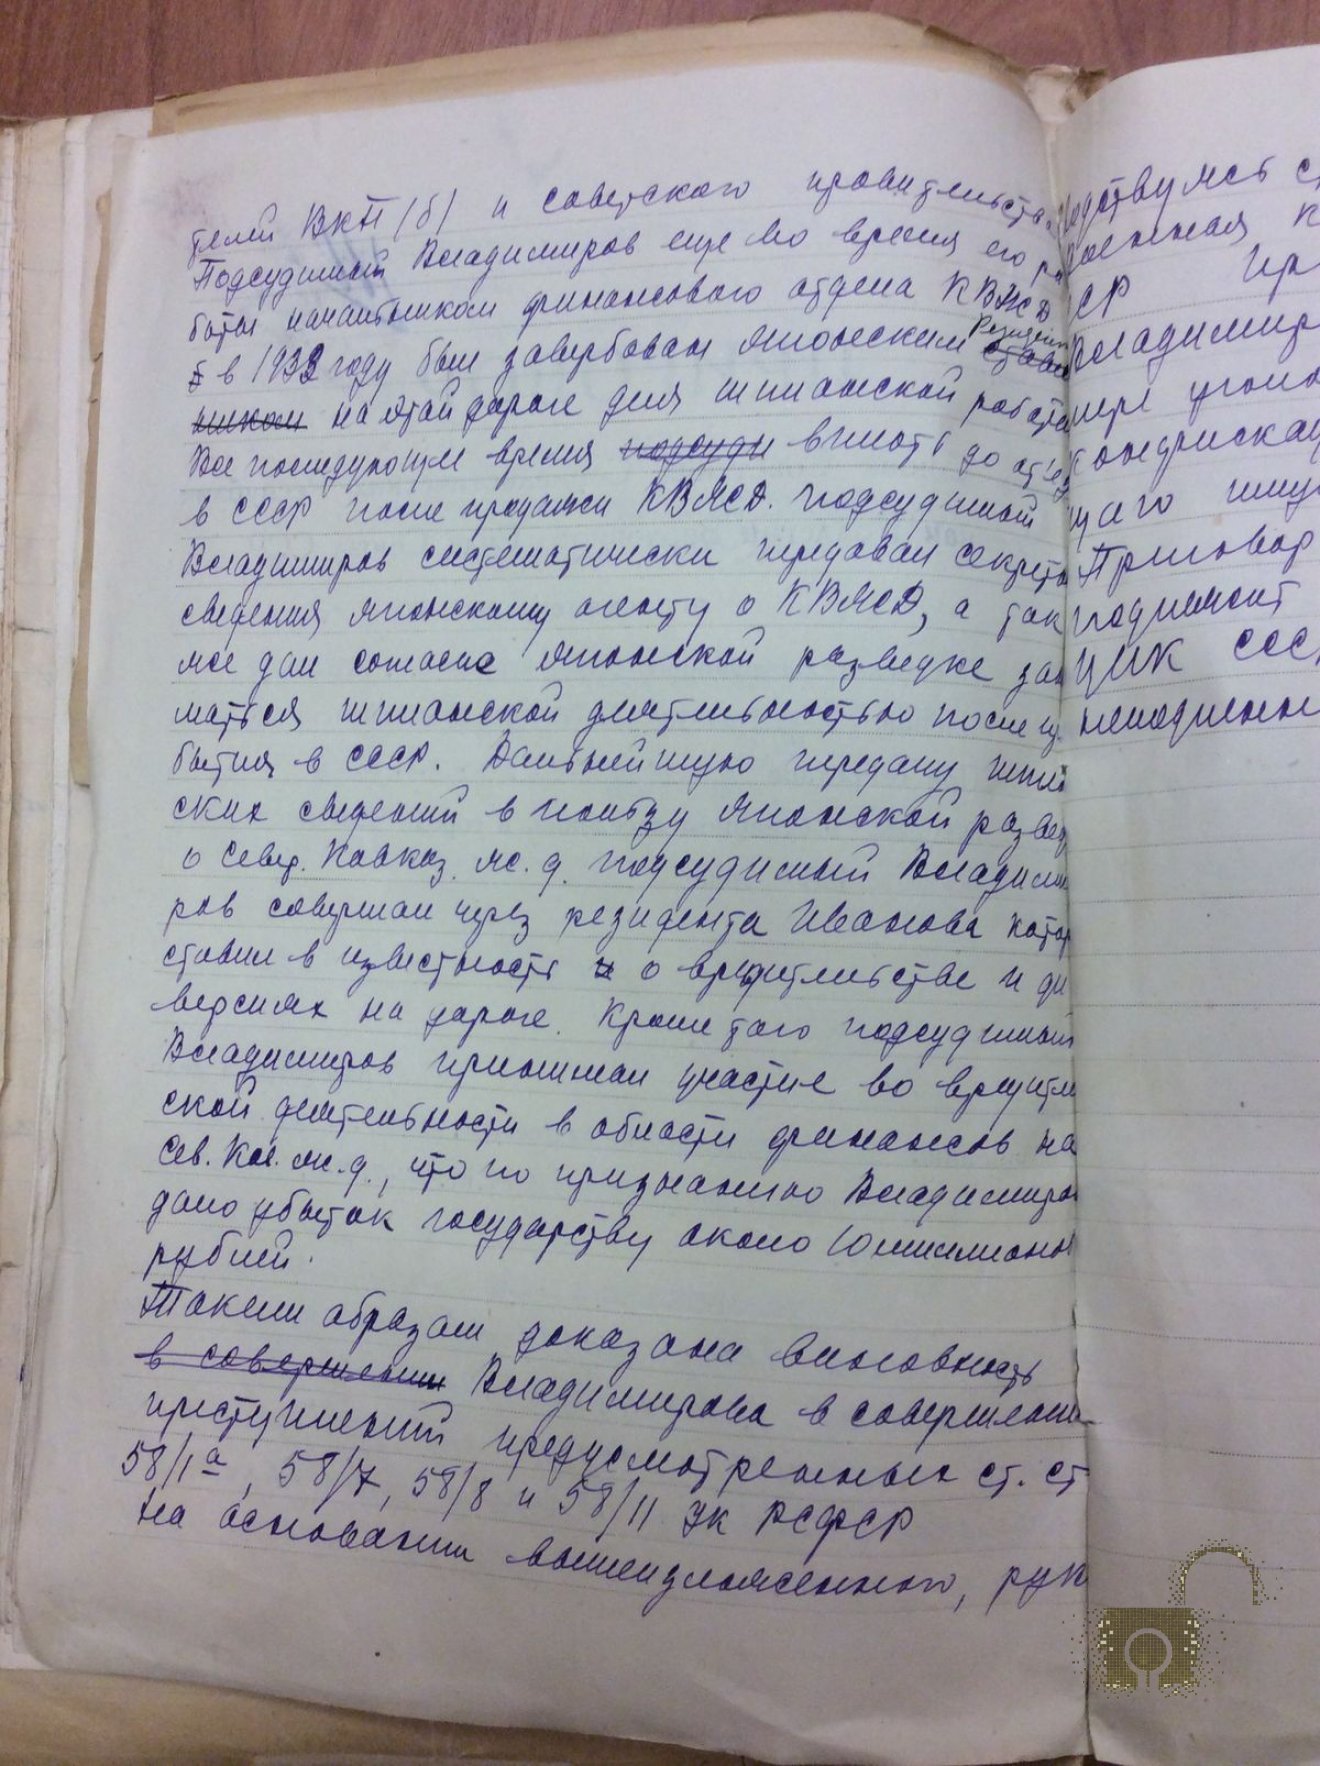 телей ВКП(б) и советского правительств
Подсудимый Владимиров еще во время его ра
боты начальником финансового отдела КВЖД
в 1932 году был завербован японским Резидент
ником на этой дороге для шпионской работы
Все последующее время подсуди вплоть до отъез
в СССР после продажи КВЖД. подсудимый
Владимиров систематически передавал секретн
сведения японскому агенту о КВЖД, а так
же дал согласие японской разведке зани
маться шпионской деятельностью после
бытия в СССР. Дальнейшую передачу шпи
ских сведений в пользу японской развед
о Север. Кавказ. ж.д. подсудимый Владими
ров совершал через резидента Иванова котор
ставил в известность о вредительстве и ди
версиях на дороге. Кроме того подсудимый
Владимиров принимал участие во вредитель
ской деятельности в области финансов на
Сев. Кав. ж.д., что по признанию Владимиро
дало убыток государству около 10 миллионов
рублей.
Таким образом доказана виновность
в совершении Владимирова в совершении
преступлений предусмотренных ст. ст
58/1а, 58/7, 58/8 и 58/11 УК РСФСР
На основании вышеизложенного, рук
водствуясь с
военная К
СР пр
Владимир
мере уголо
конфискац
щего иму
Приговор
подлежит
ЦИК ССС
немедленн